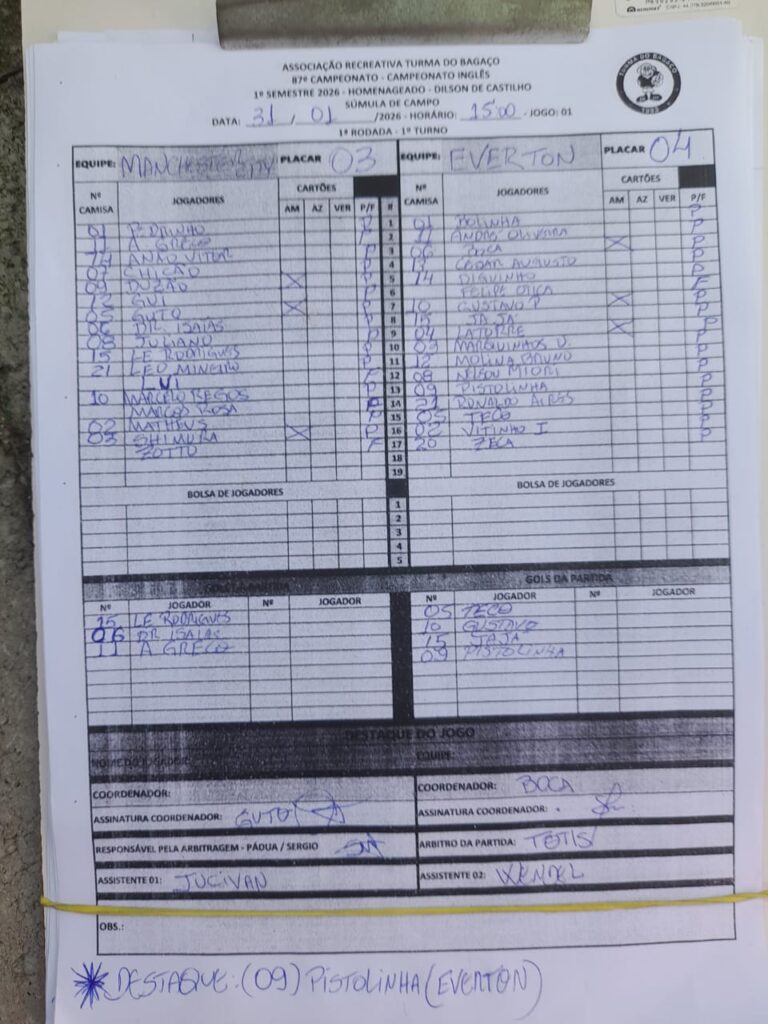 ASSOCIAÇÃO RECREATIVA TURMA DO BAGAÇO
87º CAMPEONATO - CAMPEONATO INGLÊS
1º SEMESTRE 2026 - HOMENAGEADO - DILSON DE CASTILHO
SÚMULA DE CAMPO
DATA: 31, 01 /2026 - HORÁRIO: 15:00 - JOGO: 01
1ª RODADA - 1º TURNO
TURMA DO BAGAÇO
1993
EQUIPE: MANCHESTER CITY PLACAR 03 EQUIPE: EVERTON PLACAR 04
Nº CAMISA JOGADORES CARTÕES AM AZ VER P/F # Nº CAMISA JOGADORES CARTÕES AM AZ VER P/F
01 PEDRINHO P 1 01 BOLINHA P
11 A. GRECO F 2 11 ANDRE OLIVEIRA P
14 ANÃO VITOR 3 06 BOCA X P
07 CHICÃO P 4 13 CESAR AUGUSTO P
09 DUZÃO X P 5 14 DIGUINHO P
12 GUI P 6 FELIPE OTICA F
05 GUTO X P 7 10 GUSTAVO P. X P
06 DR. ISAIAS P 8 15 JAJA P
08 JULIANO P 9 04 LATORRE X P
15 LE RODRIGUES P 10 03 MARQUINHOS V. P
21 LEO MINEIRO P 11 12 MOLINA BRUNO P
LUI F 12 08 NELSON MIORI P
10 MARCELO BEGOS P 13 09 PISTOLINHA P
MARCOS ROSA 14 21 RONALDO AIRES P
02 MATHEUS P 15 05 TECO P
03 SHIMURA X P 16 02 VITINHO I P
ZOTTO F 17 20 ZECA P
18
19
BOLSA DE JOGADORES BOLSA DE JOGADORES
1
2
3
4
5
GOLS DA PARTIDA
Nº JOGADOR Nº JOGADOR Nº JOGADOR Nº JOGADOR
15 LE RODRIGUES 05 TECO
06 DR ISAIAS 10 GUSTAVO
11 A GRECO 15 JAJA
09 PISTOLINHA
DESTAQUE DO JOGO
NOME DO JOGADOR: EQUIPE:
COORDENADOR: COORDENADOR: BOCA
ASSINATURA COORDENADOR: GUTO ASSINATURA COORDENADOR:
RESPONSÁVEL PELA ARBITRAGEM - PÁDUA / SERGIO ARBITRO DA PARTIDA: TETIS
ASSISTENTE 01: JUCIVAN ASSISTENTE 02: WENDEL
OBS.:
DESTAQUE: (09) PISTOLINHA (EVERTON)